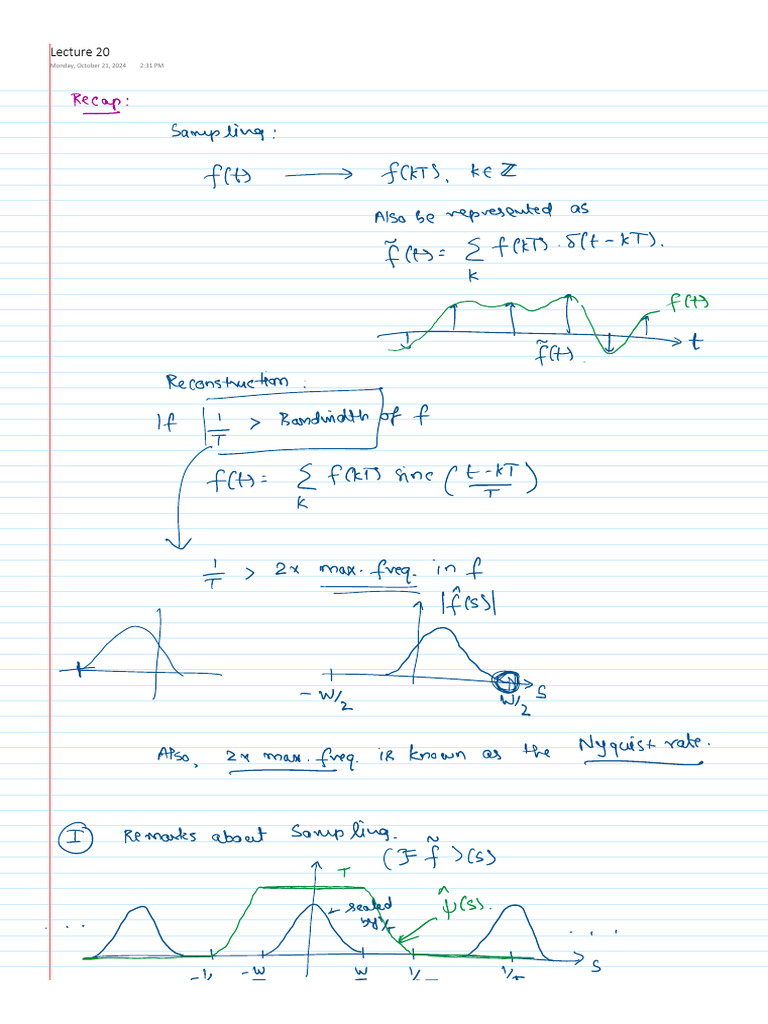 Lecture 20
Monday, October 21, 2024 2:31 PM
Recap:
Sampling:
f(t) ⟶ f(kT), k∈ℤ
Also be represented as
f̃(t) = Σ_k f(kT)·δ(t-kT).
f(t)
t
f̃(t).
Reconstruction:
If 1/T > Bandwidth of f
f(t) = Σ_k f(kT) sinc((t-kT)/T)
1/T > 2x max. freq. in f
|f̂(s)|
-W/2 W/2 s
Also, 2x max. freq. is known as the Nyquist rate.
I Remarks about Sampling.
(F f̃)(s)
T
scaled
by 1/T
ψ̂(s).
... ...
-W W 1/T s